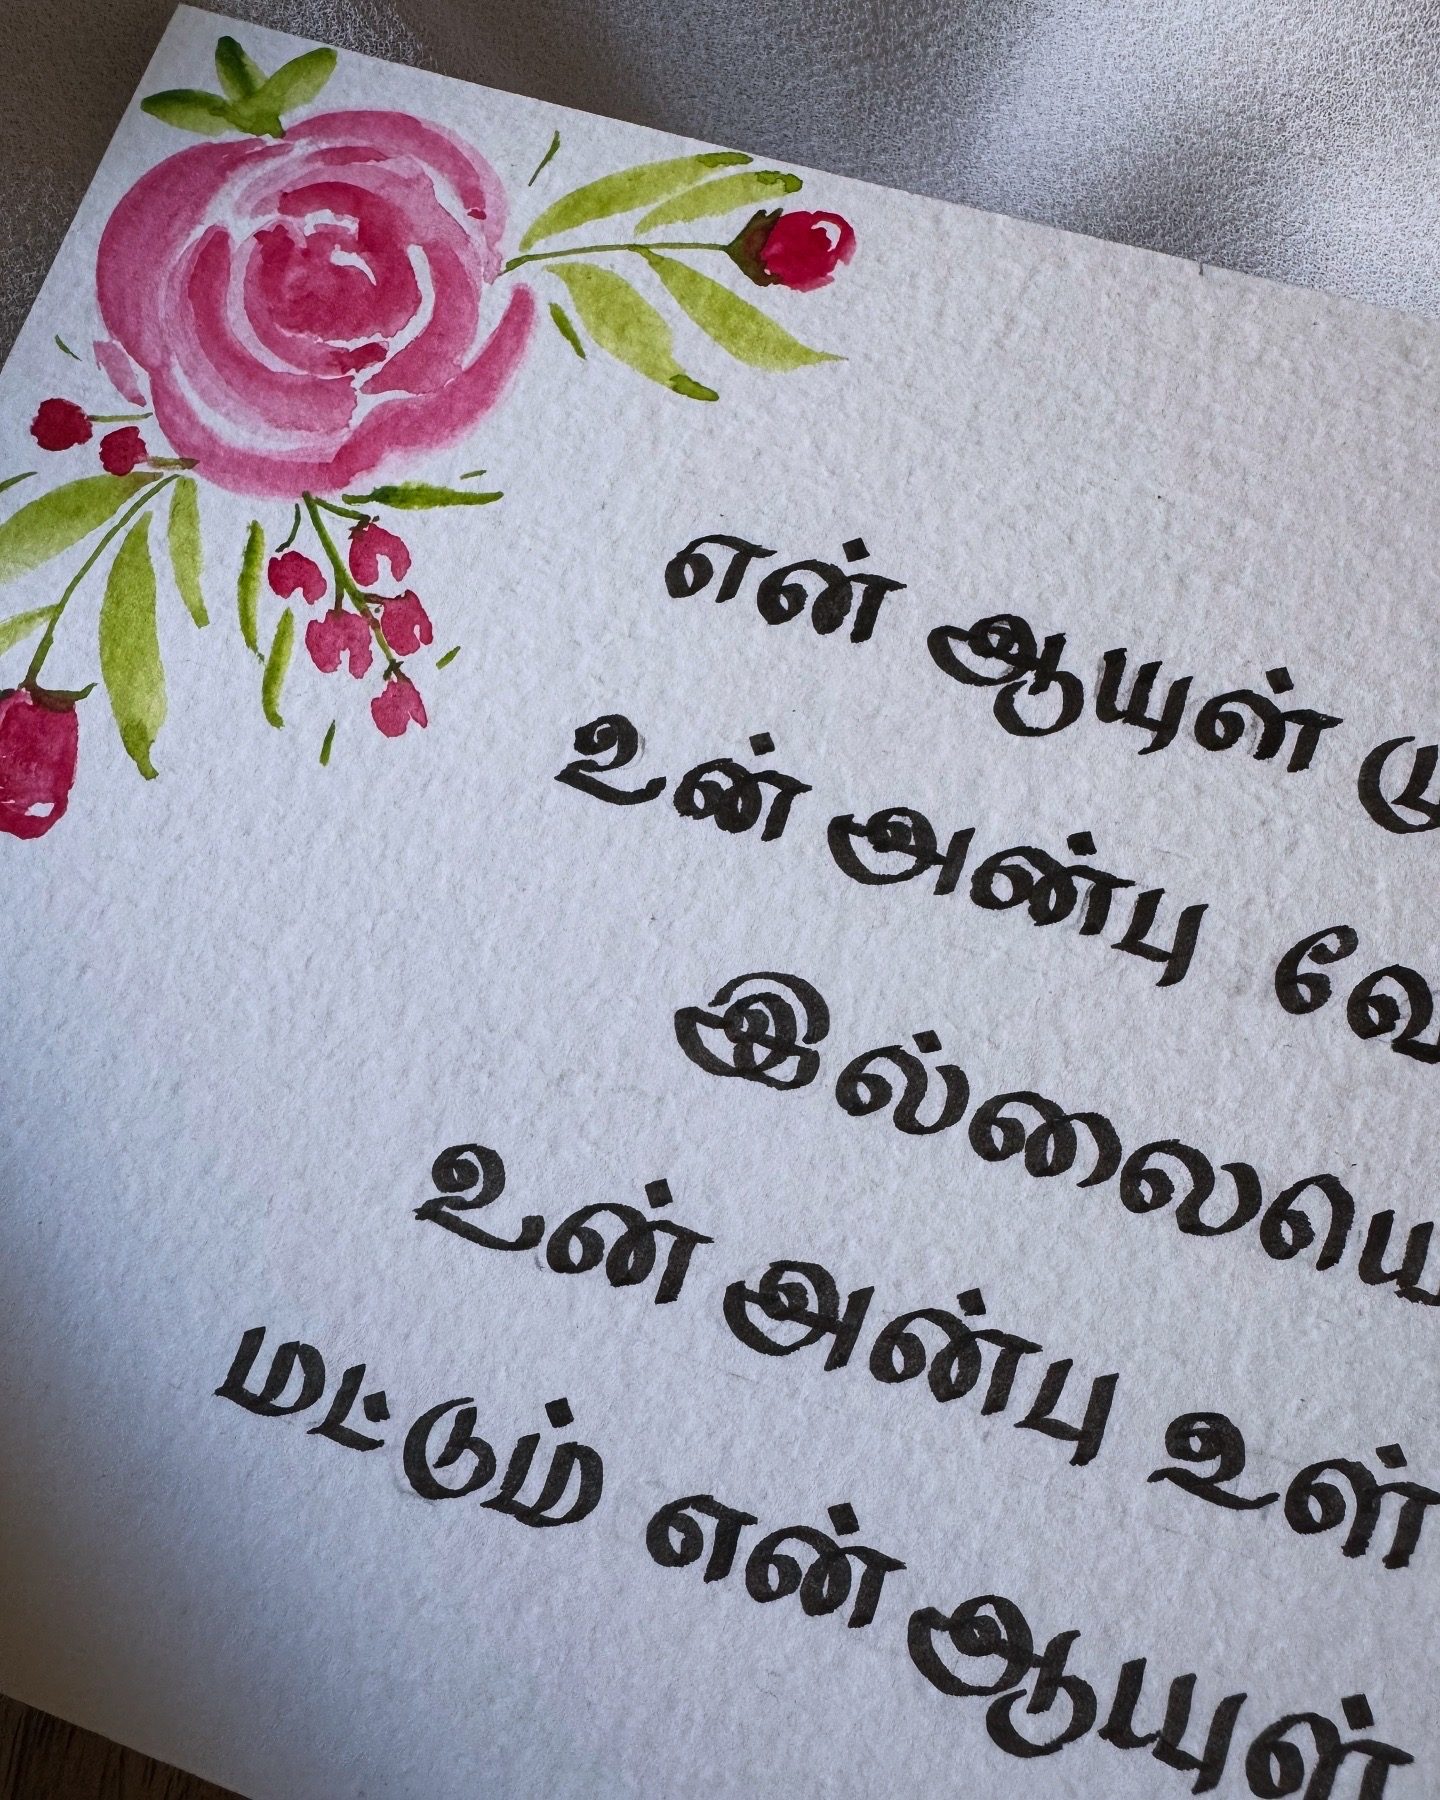 என் ஆயுள்
உன் அன்பு
இல்லையெ
உன் அன்பு உள்
மட்டும் என் ஆயுள்